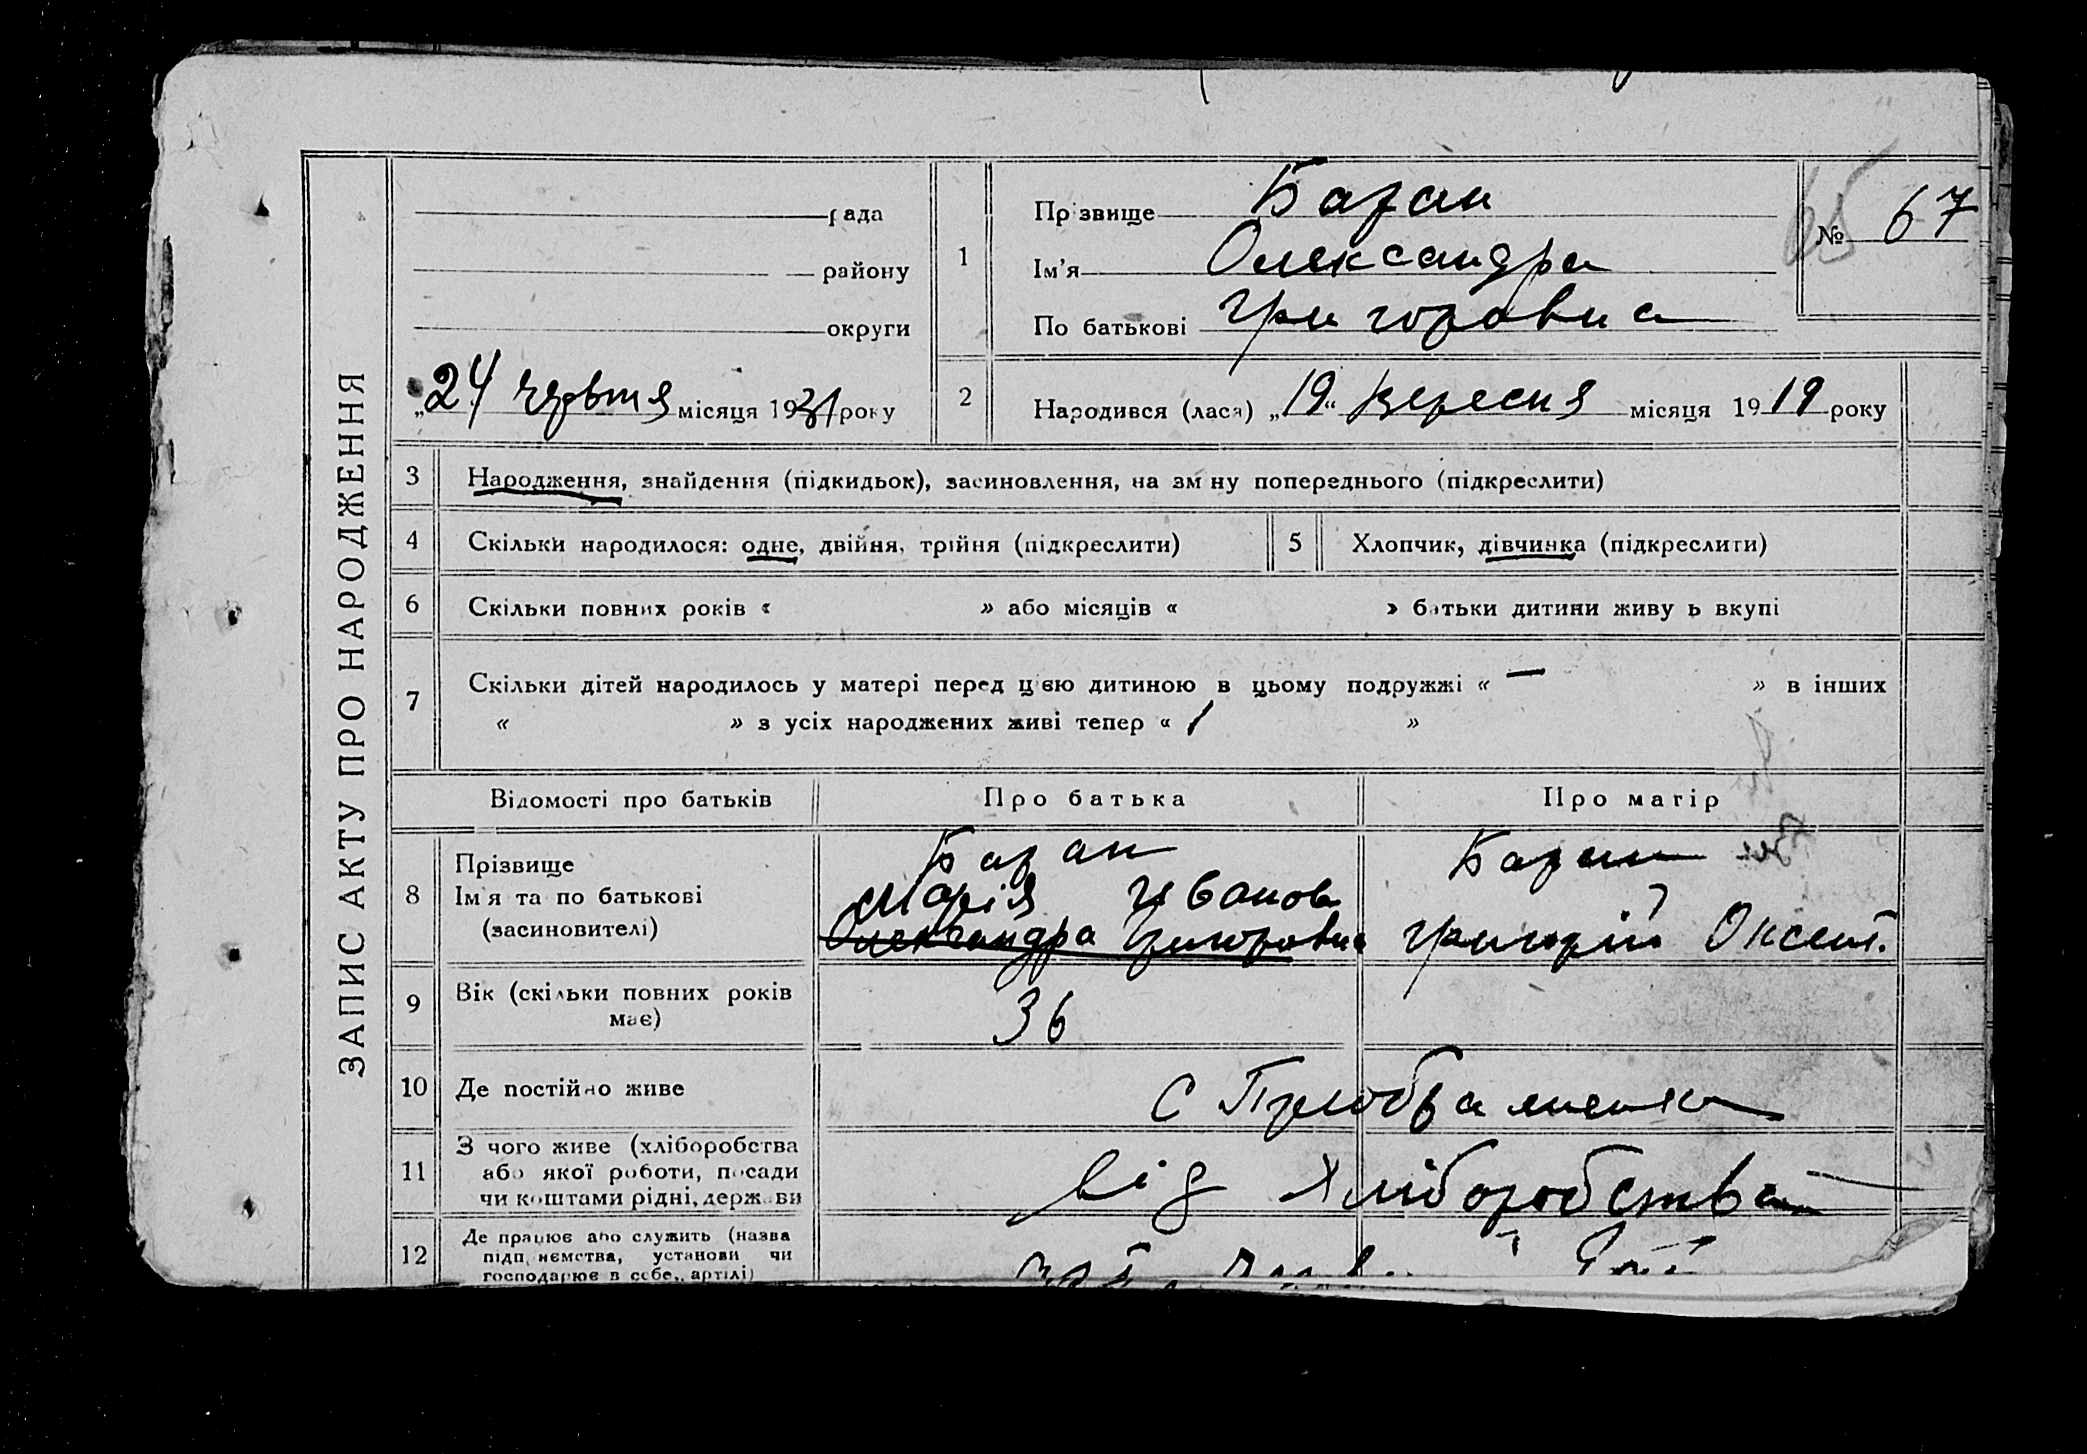 ЗАПИС АКТУ ПРО НАРОДЖЕННЯ
рада
району
округи
„24 червтя місяця 1931 року
1
Прізвище Баран
Ім’я Олександра
По батькові Григоровна
65
№ 67
2
Народився (лася) „19“ вересня місяця 1919 року
3
Народження, знайдення (підкидьок), засиновлення, на зміну попереднього (підкреслити)
4
Скільки народилося: одне, двійня, трійня (підкреслити)
5
Хлопчик, дівчинка (підкреслити)
6
Скільки повних років « » або місяців « » батьки дитини живуть вкупі
7
Скільки дітей народилось у матері перед цією дитиною в цьому подружжі « — » в інших
« » з усіх народжених живі тепер « 1 »
Відомості про батьків
Про батька
Про матір
8
Прізвище
Ім’я та по батькові
(засиновителі)
Баран
Марія Иванов
Олександра Григоровна
Баран
Григорій Оксент.
9
Вік (скільки повних років
має)
36
10
Де постійно живе
с
11
З чого живе (хліборобства
або якої роботи, посади
чи коштами рідні, держави
від Хліборобства
12
Де працює або служить (назва
підприємства, установи чи
господарює в себе, артілі)